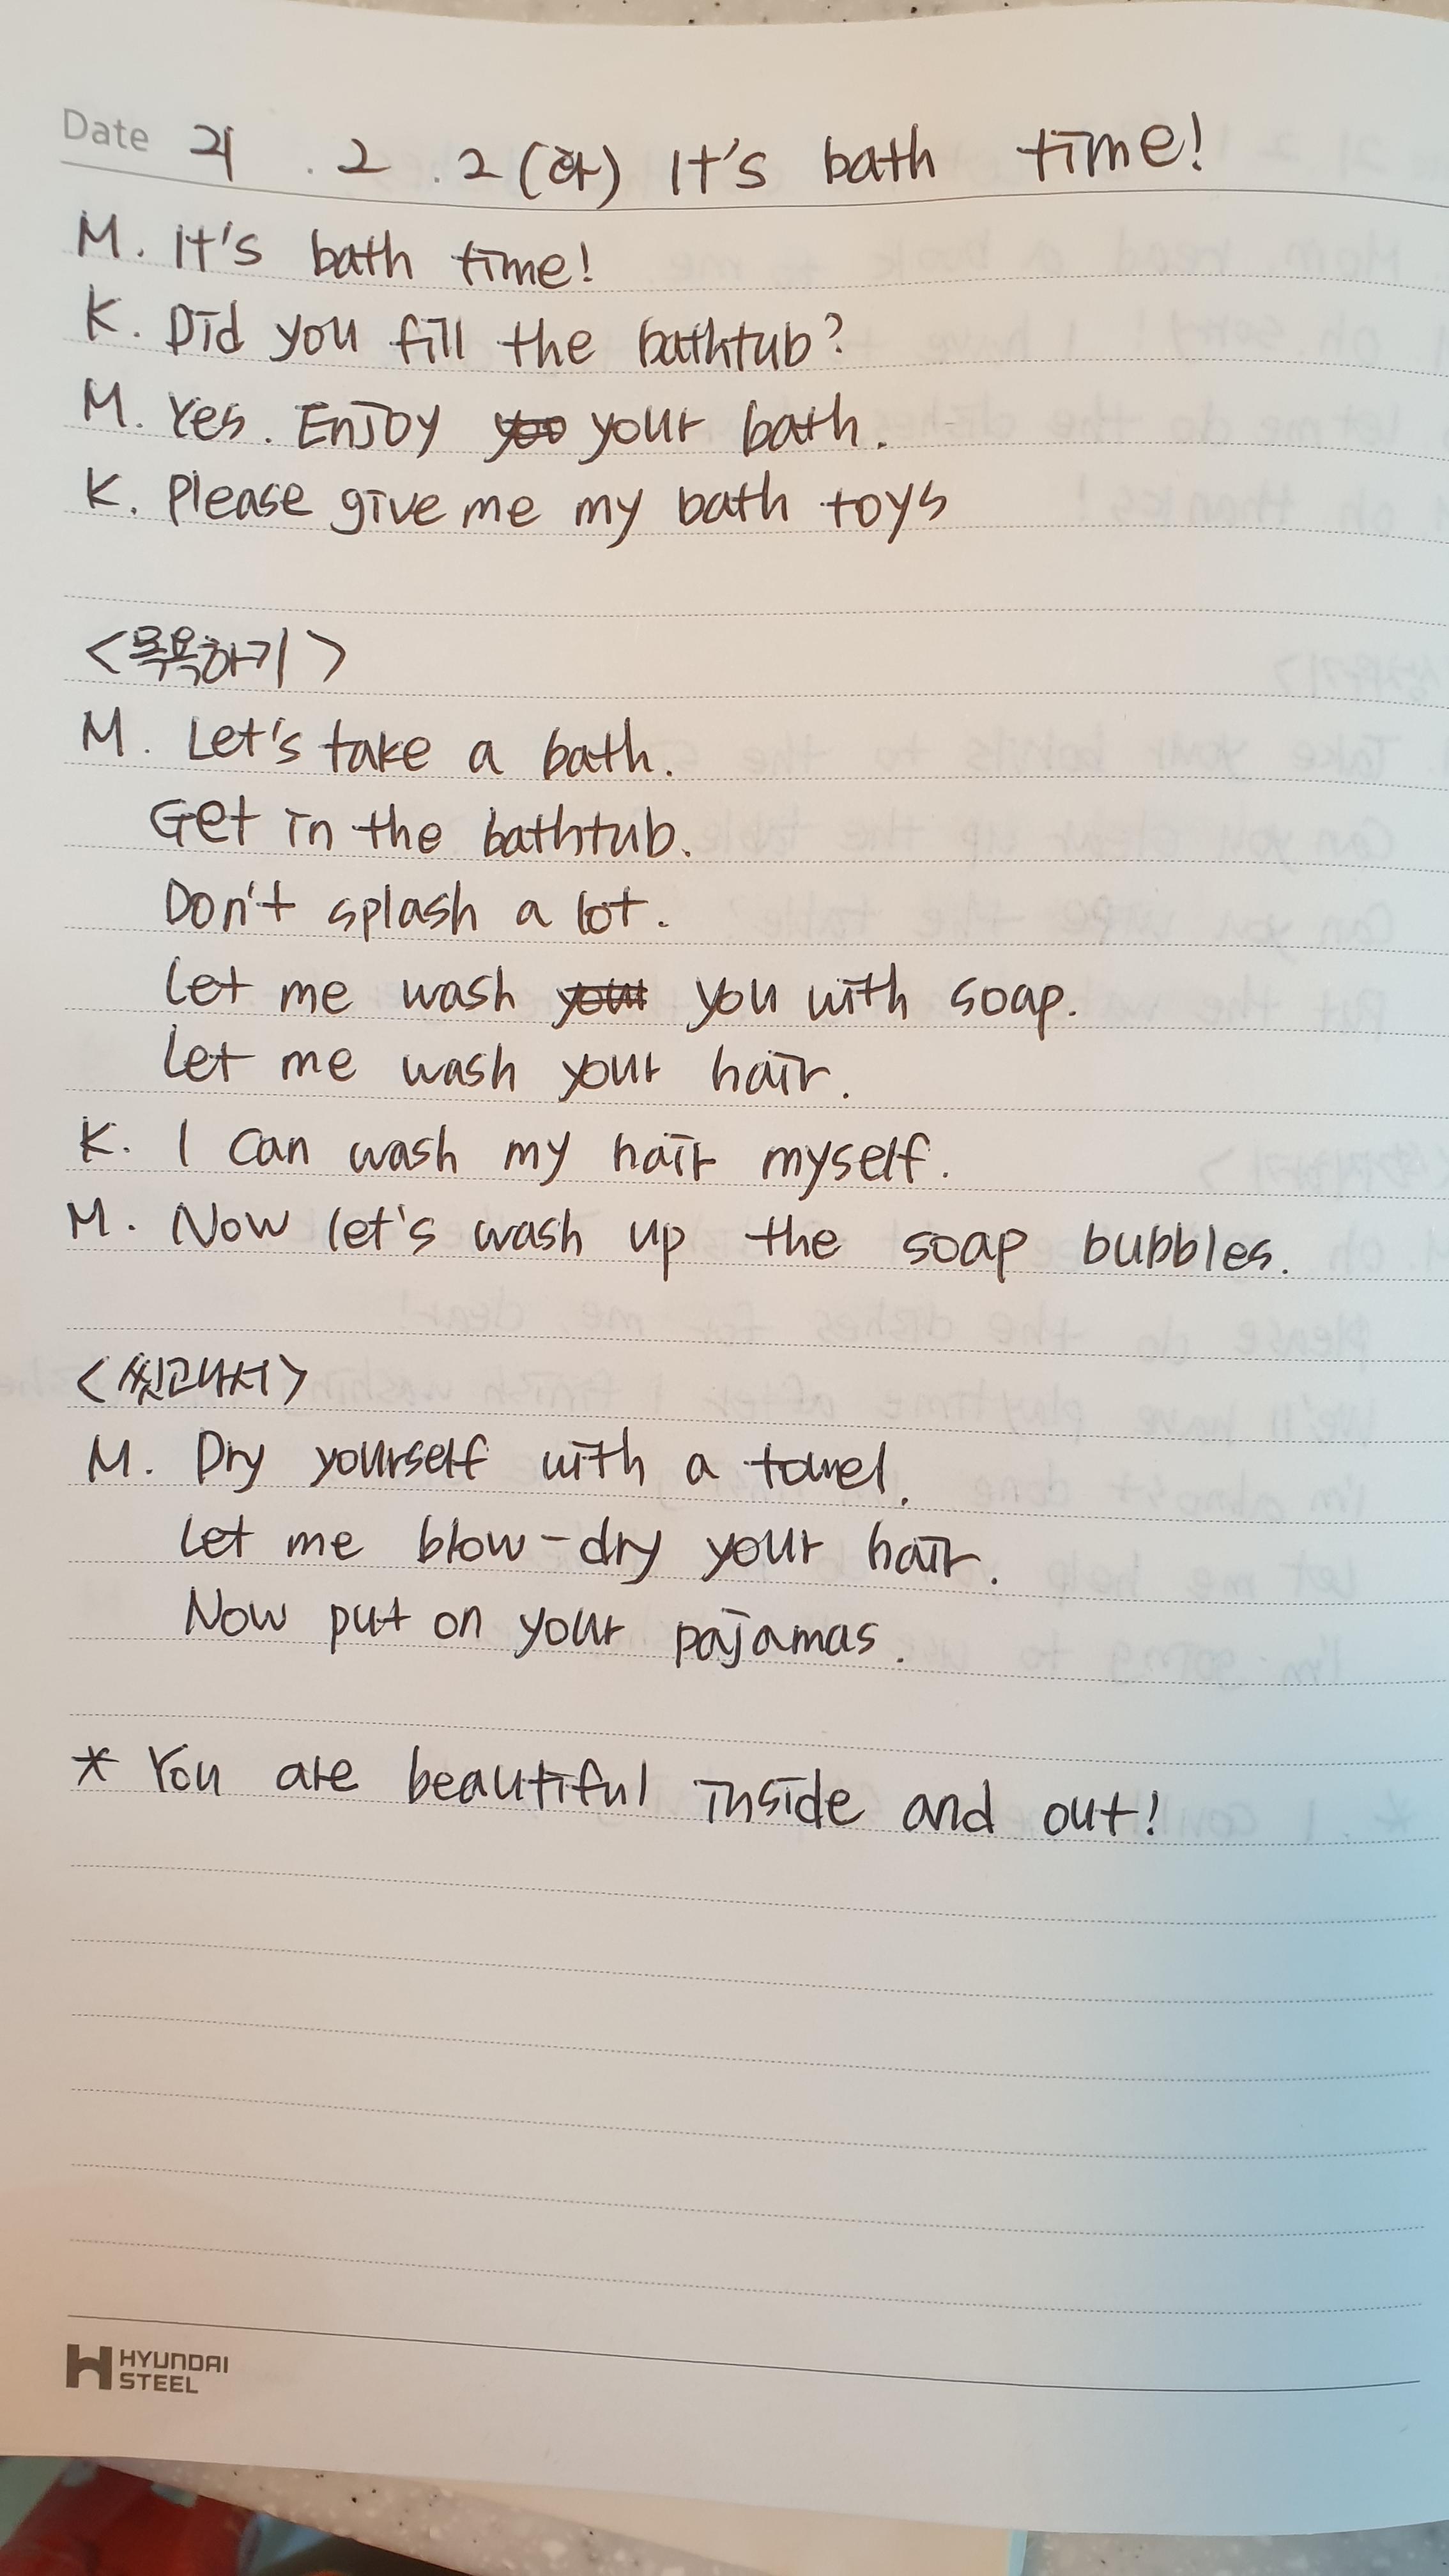 Date 21 . 2 . 2 (화) It's bath time!
M. It's bath time!
K. Did you fill the bathtub?
M. Yes. Enjoy your bath.
K. Please give me my bath toys
<목욕하기>
M. Let's take a bath.
Get in the bathtub.
Don't splash a lot.
Let me wash you with soap.
Let me wash your hair.
K. I can wash my hair myself.
M. Now let's wash up the soap bubbles.
<씻고나서>
M. Dry yourself with a towel.
Let me blow-dry your hair.
Now put on your pajamas.
* You are beautiful inside and out!
HYUNDAI
STEEL